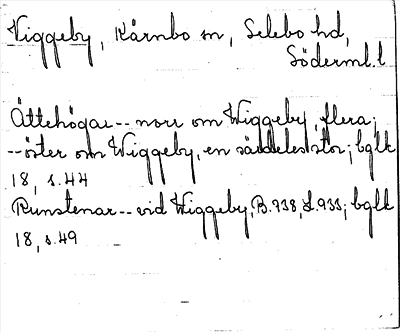 Viggeby, Kärnbo sn, Selebo hd,
Söderml. l
Ättehögar -- norr om Wiggeby, flera;
-- öster om Wiggeby, en särdeles stor; bglk
18, s. 44
Runstenar -- vid Wiggeby, B. 938, L. 933; bglk
18, s. 49